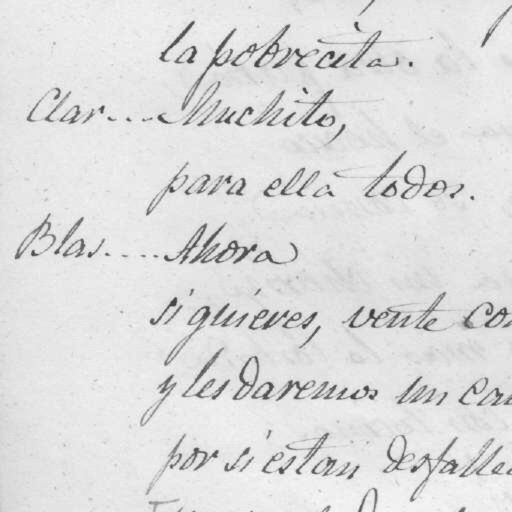 la pobrecita.
Clar.... Muchito,
para ella todos.
Blas..... Ahora
si quieres, vente con
y les daremos un cal
por si estan desfalle